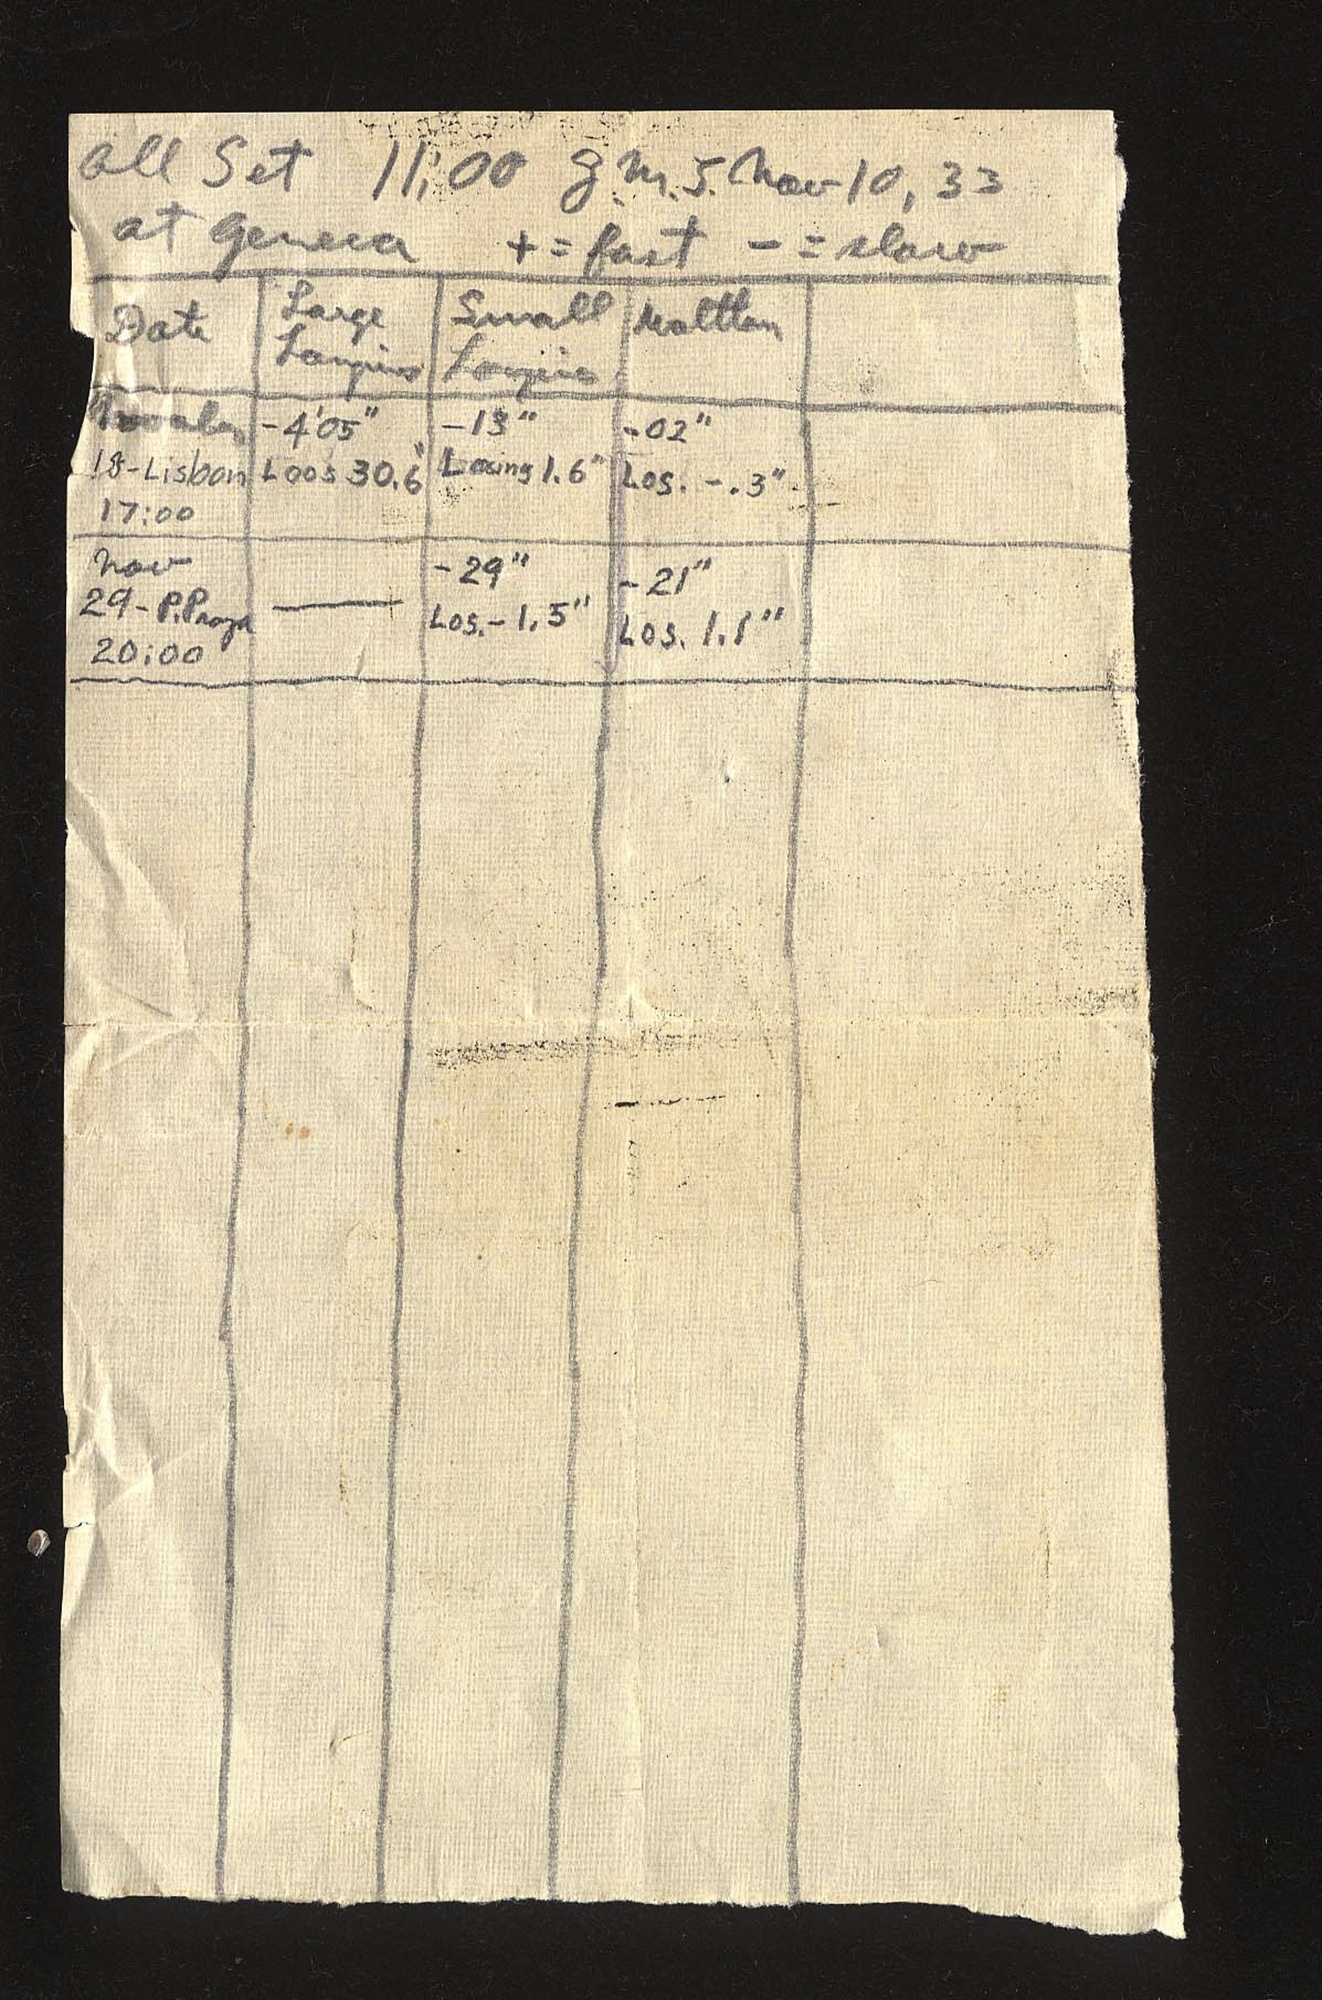 All Set 11:00 G.M.T. Nov 10, 33
at Geneva + = fast - = slow
Date Large Longines Small Longines Waltham
November 18-Lisbon 17:00
-4'05"
Loos 30.6"
-13"
Loosing 1.6"
-02"
Los. -.3"
Nov
29-P.Praya
20:00
-29"
Los.-1.5"
-21"
Los. 1.1"